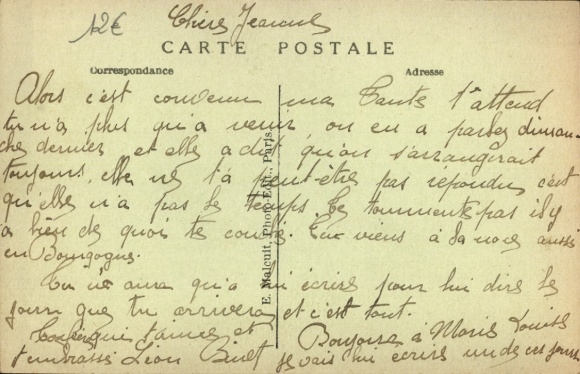 12€
Chère Jeanne
CARTE POSTALE
Correspondance
Adresse
Alors c'est convenu ma Tante t'attend
tu n'a plus qu'a venir, on en a parler diman-
che dernier et elle a dit qu'on s'arrangerait
toujours. elle ne t'a peut-être pas répondu c'est
qu'elle n'a pas le temps. te tourmente pas il y
a bien de quoi te coucher. Tu viens à la noce aussi
en Bourgogne.
Tu n'aura qu'a lui écrire pour lui dire le
jour que tu arrivera et c'est tout.
qui t'aime et
t'embrasse Léon Binet
Bonjour à Marie Louise
je vais lui écrire un de ces jours
E. Malcuit, Photo-Edit., Paris.